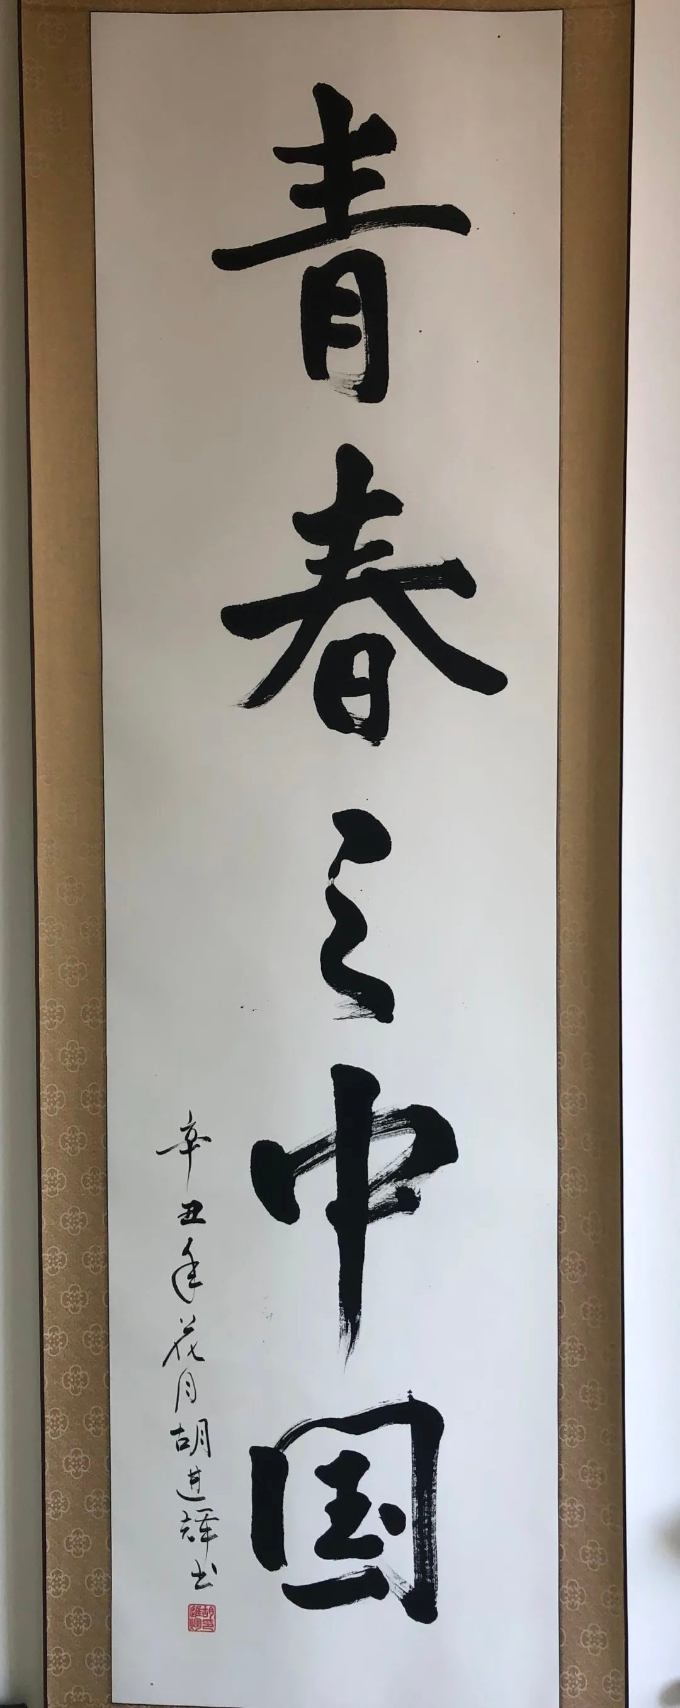 青春之中国
辛丑年花月胡进辉书